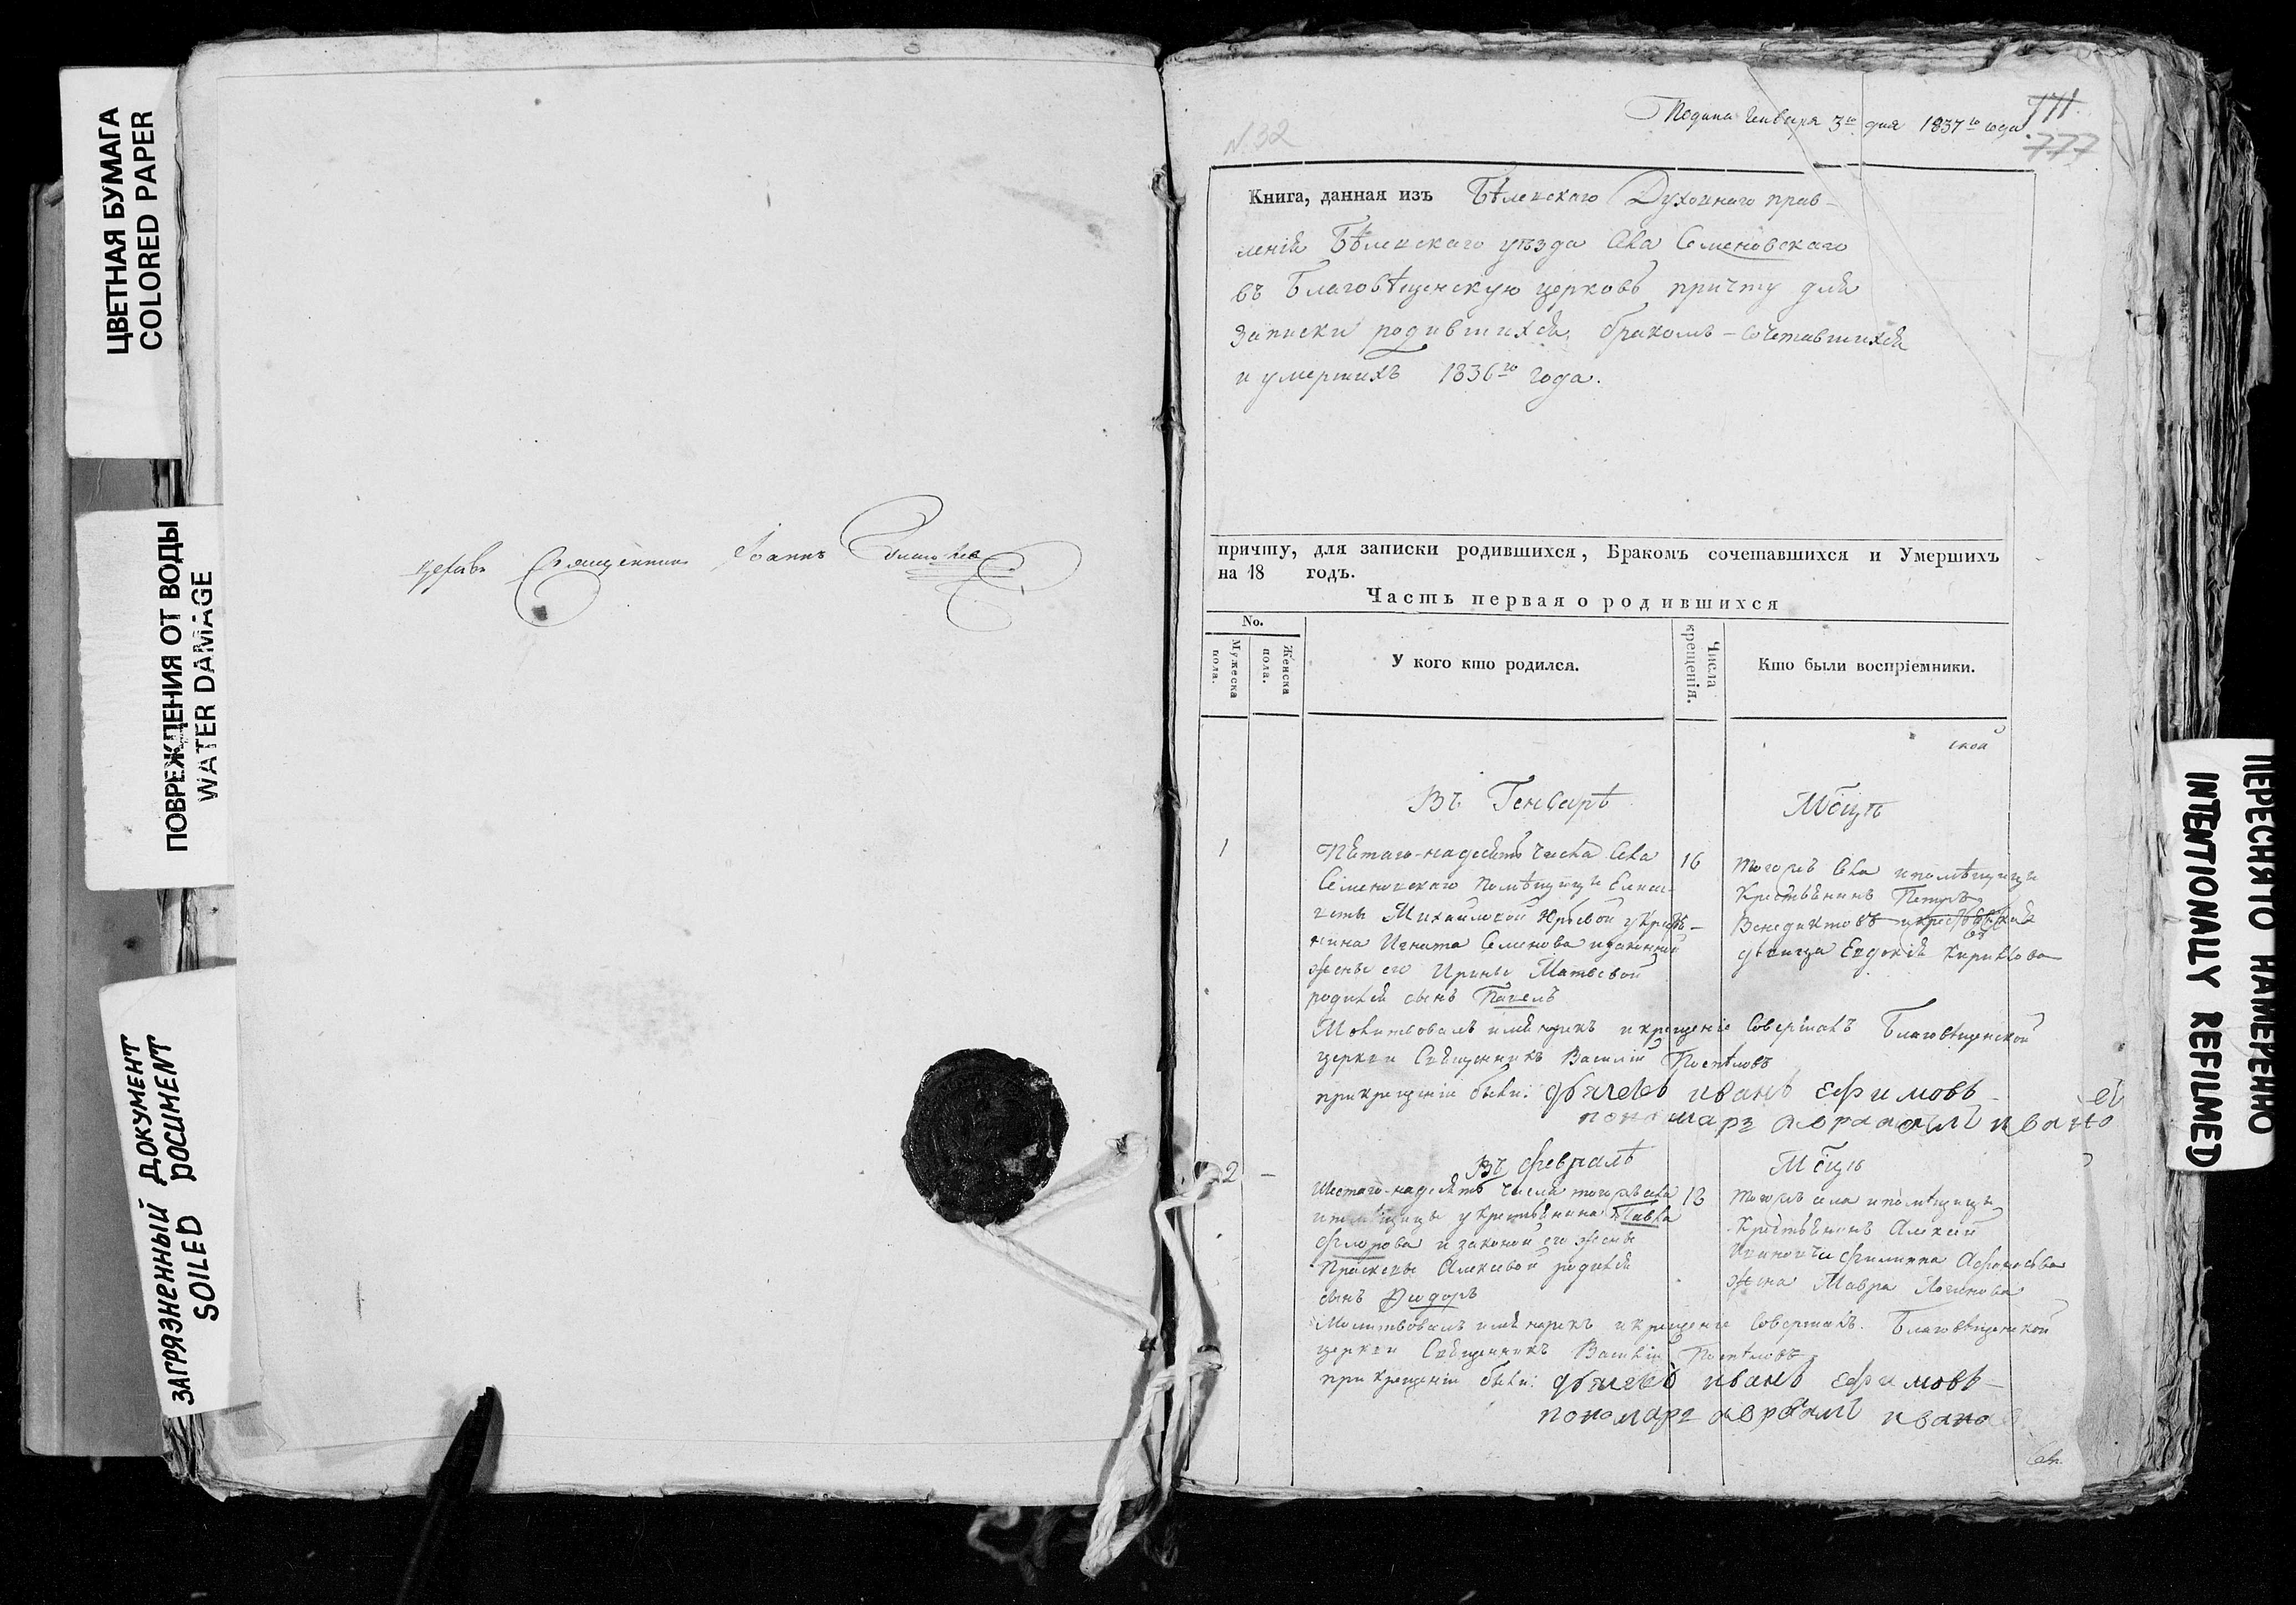 ЦВЕТНАЯ БУМАГА
COLORED PAPER
ПОВРЕЖДЕНИЯ ОТ ВОДЫ
WATER DAMAGE
ЗАГРЯЗНЕННЫЙ ДОКУМЕНТ
SOILED DOCUMENT
Священникъ Іоаннъ
Подана Генваря 3го дня 1837го года
771.
777
N. 32
Книга, данная изъ Бѣлевского Духовнаго прав-
ленія Бѣлевскаго уѣзда села Семеновскаго
въ Благовѣщенскую церковь причту для
записки родившихся, бракомъ-сочетавшихся
и умершихъ 1836го года.
причту, для записки родившихся, Бракомъ сочетавшихся и Умершихъ
на 18 годъ.
Часть первая о родившихся
No.
Мужеска пола.
Женска пола.
У кого кто родился.
Числа крещенія.
Кто были воспріемники.
Въ Генварѣ
Мсцѣ
1
Пятаго-надесять числа села
Семеновскаго помѣщицы Елиса-
веты Михайловой Юрьевой у крестья-
нина Игната Семенова и законной
жены его Ирины Матвѣевой
родился сынъ Павелъ
16
тогожъ села и помѣщицы
крестьянинъ Петръ
Венедиктовъ
дѣвица Евдокія Кирилова
Молитвовалъ имя нарекъ и крещеніе совершалъ Благовѣщенской
церкви Священникъ Василій Поспѣловъ
при крещеніи были: дьячекъ иванъ ефимовъ
пономарь авраамъ ивано
2
Въ Февралѣ
Мсцѣ
Шестаго-надесять числа тогожъ села
и помѣщицы у крестьянина Павла
Фролова и законой его жены
Прасковьи Алексѣвой родился
сынъ Фидоръ
18
тогожъ села и помѣщицы
крестьянинъ Алексѣй
жена Мавра Логинова
Молитвовалъ имя нарекъ и крещеніе совершалъ Благовѣщенской
церкви Священникъ Василій Поспѣловъ
при крещеніи были: дьячекъ иванъ ефимовъ
пономарь авраамъ ивано
ПЕРЕСНЯТО НАМЕРЕННО
INTENTIONALLY REFILMED